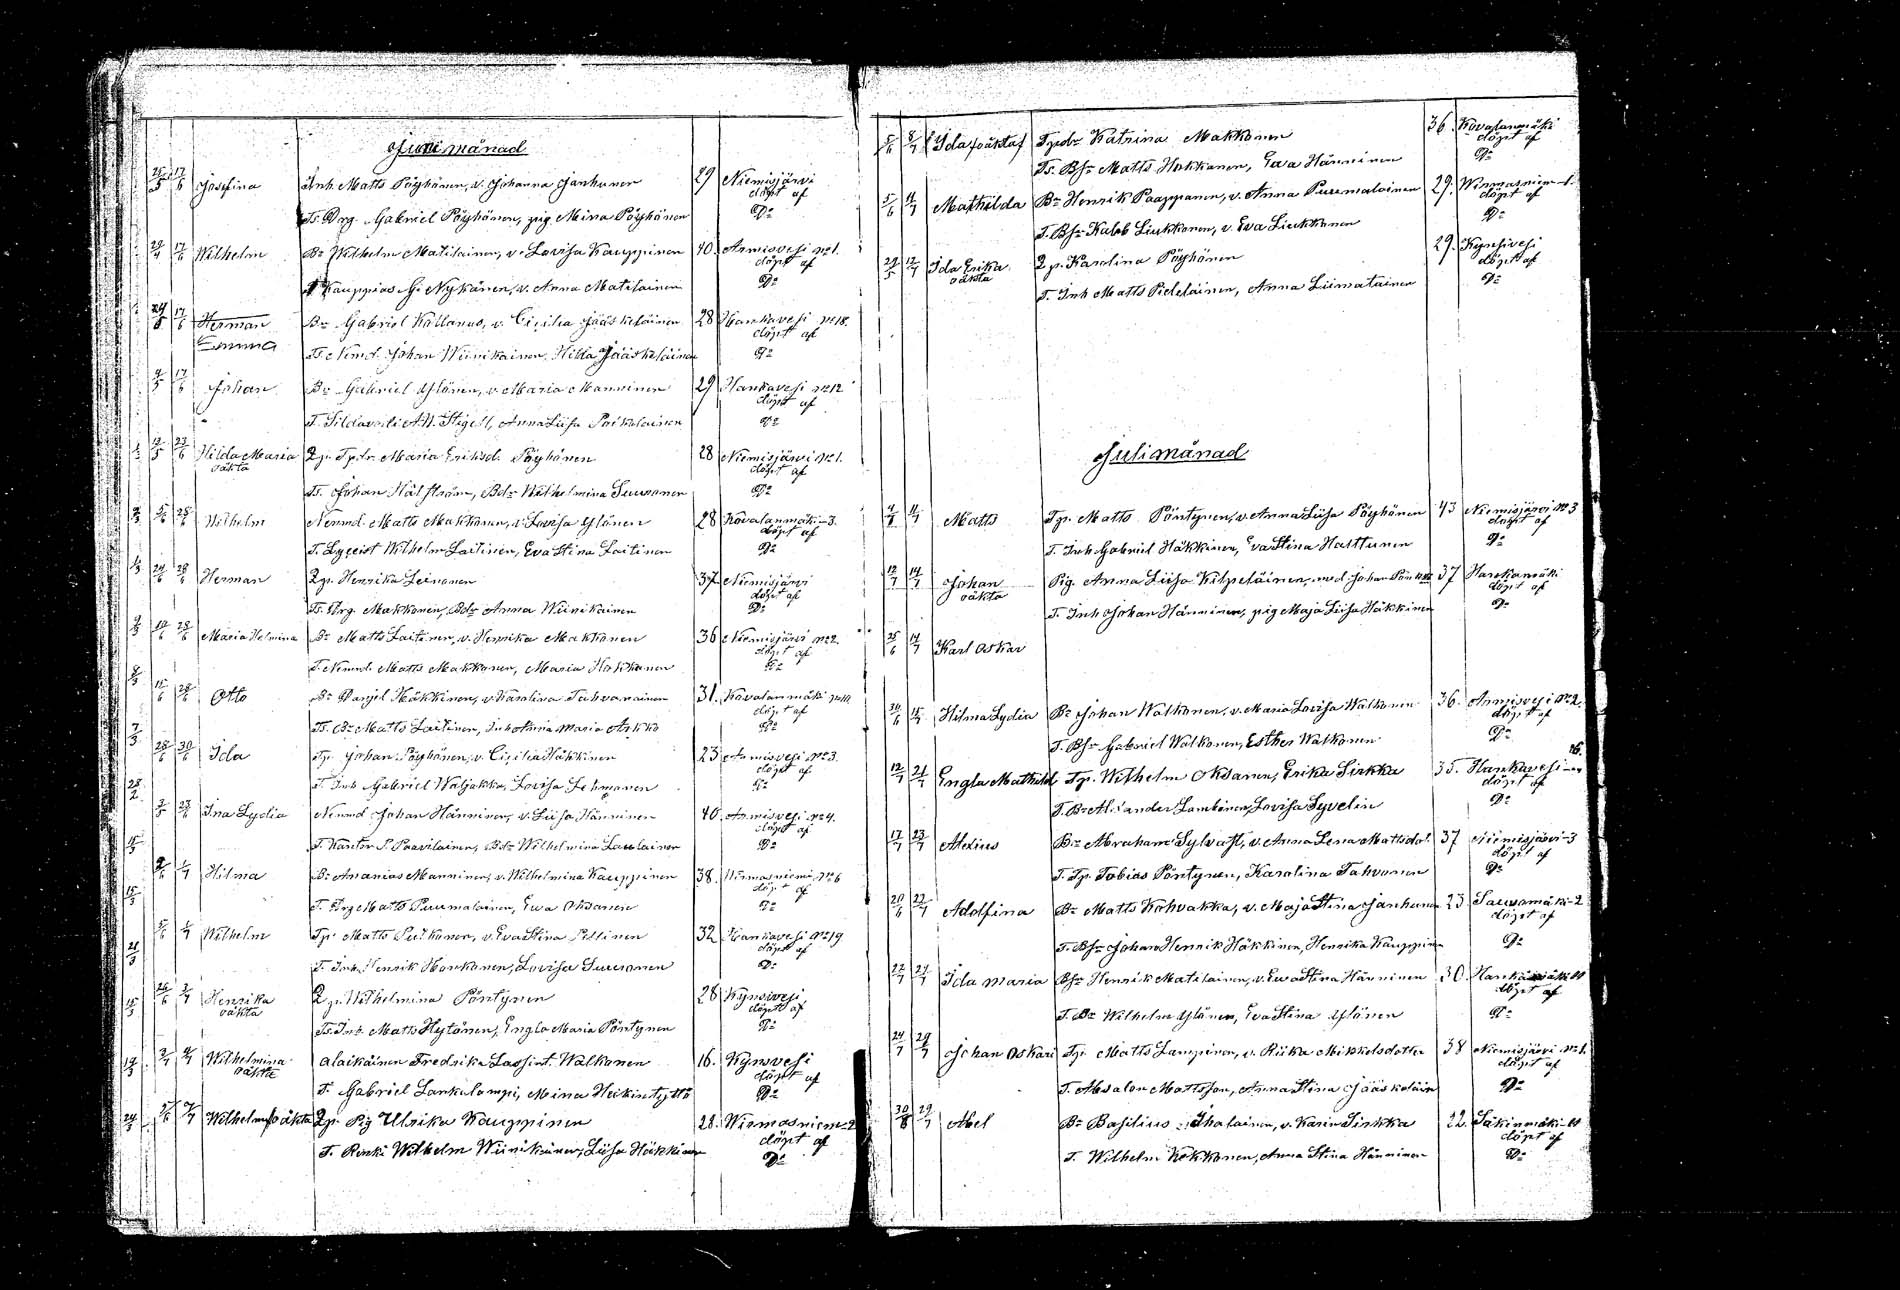 Juni månad
25/5 17/6 Josefina Inh. Matts Pöyhönen, v. Johanna Janhunen 29 Niemisjärvi
döpt af
Ts. Drg. Gabriel Pöyhönen, pig. Mina Pöyhönen Do
29/4 17/6 Wilhelm Bo Wilhelm Matilainen, v. Lovisa Kauppinen 40. Armisvesi No 1.
döpt af
Kauppias G. Nykänen, v. Anna Matilainen Do
24/5 17/6 Herman Bo Gabriel Kallanus, v. Cicilia Jääskeläinen 28 Hankavesi No 18.
Emma döpt af
Ts. Nämd. Johan Wiinikainen, Hilda Jääskeläinen Do
9/5 17/6 Johan Bo Gabriel Ylönen, v. Maria Manninen 29 Hankavesi No 12
döpt af
T. Sildavouti A.N. Stigell, Anna Liisa Poikolainen Do
12/5 23/6 Hilda Maria 2 p. Tpdr. Maria Eriksd. Pöyhönen 28 Niemisjärvi No 1.
oäkta döpt af
Ts. Johan Hälström, Bdr Wilhelmina Suuronen Do
5/6 28/6 Wilhelm Nämnd. Matts Makkonen, v. Lovisa Ylönen 28 Kovalanmäki-3.
döpt af
T. Lyceist Wilhelm Laitinen, Eva Stina Laitinen Do
24/6 28/6 Herman 2 p. Henrika Leinonen 37 Niemisjärvi
döpt af
Ts. Drg. Makkonen, Bdr Anna Wiinikainen Do
10/6 28/6 Maria Helmina Bo Matts Laitinen, v. Henrika Makkonen 36 Niemisjärvi No 2.
döpt af
T. Nämnd. Matts Makkonen, Maria Hokkanen Do
15/6 28/6 Otto Bo Daniel Häkkinen, v. Karolina Tahvanainen 31. Kovalanmäki
döpt af
Ts. Bo Matts Laitinen, Inh Anna Maria Arkko Do
28/6 30/6 Ida Tp. Johan Pöyhönen, v. Cicilia Häkkinen 23 Armisvesi No 3.
döpt af
T. Inh Gabriel Waljakka, Lovisa Lehmonen Do
3/5 23/6 Ina Lydia Nämnd Johan Hänninen, v. Liisa Hänninen 40. Armisvesi No 4.
döpt af
T. Kantor P. Paavilainen, Bdr Wilhelmina Laulainen Do
2/6 1/7 Hilma Bo Ananias Manninen, v. Wilhelmina Kauppinen 38. Wirmasniemi No 6
döpt af
T. Drg Matts Puurmalainen, Eva Oksanen Do
5/6 1/7 Wilhelm Tp. Matts Pulkonen, v. Eva Stina Pellinen 32 Hankavesi No 19
döpt af
T. Inh. Henrik Honkonen, Lovisa Suuronen Do
26/6 3/7 Henrika 2 p. Wilhelmina Pöntynen 28 Kynsivesi
oäkta döpt af
Ts. Inh. Matts Hytönen, Engla Maria Pöntynen Do
2/7 4/7 Wilhelmina alaikäinen Fredrika Lassint. Walkonen 16. Kynsivesi
oäkta döpt af
T. Gabriel Lankolampi, Mina Heikintytto Do
5/6 7/7 Wilhelm oäkta 2 p. Pig Ulrika Kauppinen 28. Wirmasniemi-2
döpt af
T. Renki Wilhelm Wiinikainen, Liisa Häkkinen Do
5/6 8/7 Ida (oäkta) Tpdr Katrina Makkonen 36. Kovalanmäki
döpt af
Ts. Bsn Matts Hokkanen, Eva Hänninen Do
5/6 11/7 Mathilda Bo Henrik Paappanen, v. Anna Puurmalainen 29. Wirmasniemi-1.
döpt af
T. Bsn Kaleb Liukkonen, v. Eva Liukkonen Do
29/5 12/7 Ida Erika 2 p. Karolina Pöyhönen 29. Kynsivesi
oäkta döpt af
T. Inh Matts Pieteläinen, Anna Liimatainen Do
Juli månad
4/7 11/7 Matts Tp. Matts Pöntynen, v. Anna Liisa Pöyhönen 43 Niemisjärvi No 3
döpt af
T. Inh Gabriel Häkkinen, Eva Stina Halttunen Do
12/7 14/7 Johan Pig. Anna Liisa Kilpeläinen, med Johan 37 Hankamäki
oäkta döpt af
T. Inh Johan Hänninen, pig Maja Liisa Häkkinen Do
25/6 14/7 Karl Oskar
30/6 15/7 Hilma Lydia Bo Johan Walkonen, v. Maria Lovisa Walkonen 36. Armisvesi No 2.
döpt af
T. Bsn Gabriel Walkonen, Esther Walkonen Do
12/7 21/7 Engla Mathild Tp. Wilhelm Oksanen, Erika Sirkka 35. Hankavesi- 16.
döpt af
T. Bo Alexander Lambinen, Lovisa Syvelin Do
17/7 23/7 Alexius Bo Abraham Sylvast, v. Anna Lena Mattsdot. 37 Niemisjärvi-3
döpt af
T. Tp. Tobias Pöntynen, Karolina Tahvonen Do
20/6 22/7 Adolfina Bo Matts Kohvakka, v. Maja Stina Janhunen 23 Sauvamäki-2
döpt af
T. Bsn Johan Henrik Häkkinen, Henrika Kauppinen Do
22/7 21/7 Ida Maria Bsn Henrik Matilainen, v. Eva Stina Hänninen 30. Hankamäki
döpt af
T. Bo Wilhelm Ylönen, Eva Stina Ylönen Do
24/7 29/7 Johan Oskari Tp. Matts Lampinen, v. Riika Mikkelsdotter 38 Niemisjärvi No 1.
döpt af
T. Absalon Mattsson, Anna Stina Jääskeläin Do
30/6 29/7 Abel Bo Basilius Ihalainen, v. Karin Sirkka 22. Säkinmäki-
döpt af
T. Wilhelm Kokkonen, Anna Stina Hänninen Do